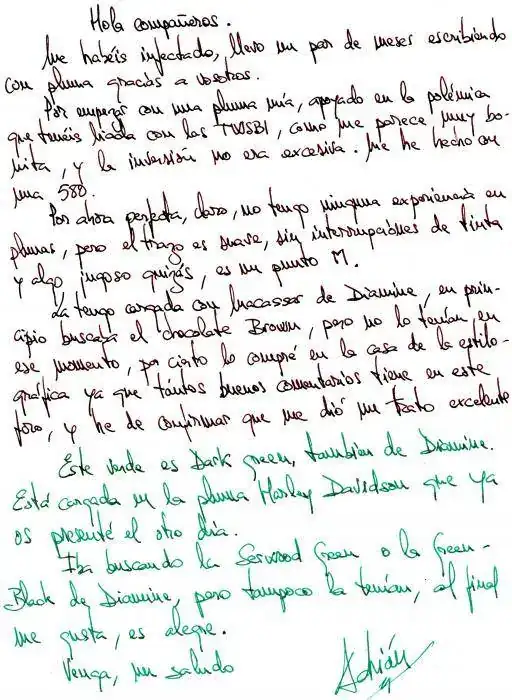 Hola compañeros.
Me habéis infectado, llevo un par de meses escribiendo
con pluma gracias a vosotros.
Por empezar con una pluma mía, apoyado en la polémica
que tenéis liada con las TWSBI, como me parece muy bo-
nita, y la inversión no era excesiva. Me he hecho con
una 580.
Por ahora perfecta, claro, no tengo ninguna experiencia en
plumas, pero el trazo es suave, sin interrupciones de tinta
y algo jugoso quizás, es un punto M.
La tengo cargada con Macassar de Diamine, en prin-
cipio buscaba el chocolate Brown, pero no lo tenían en
ese momento, por cierto lo compré en la casa de la estilo-
gráfica ya que tántos buenos comentarios tiene en este
foro, y he de confirmar que me dió un trato excelente
Este verde es Dark green, también de Diamine.
Está cargada en la pluma Harley Davidson que ya
os presenté el otro día.
Iba buscando la Serwood Green o la Green-
Black de Diamine, pero tampoco la tenían, al final
me gusta, es alegre.
Venga, un saludo
Adrián